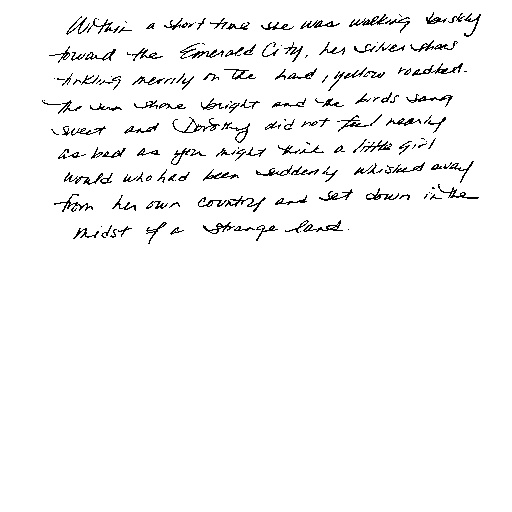 Within a short time she was walking briskly
toward the Emerald City, her silver shoes
tinkling merrily on the hard, yellow roadbed.
The sun shone bright and the birds sang
sweet and Dorothy did not feel nearly
as bad as you might think a little girl
would who had been suddenly whisked away
from her own country and set down in the
midst of a strange land.